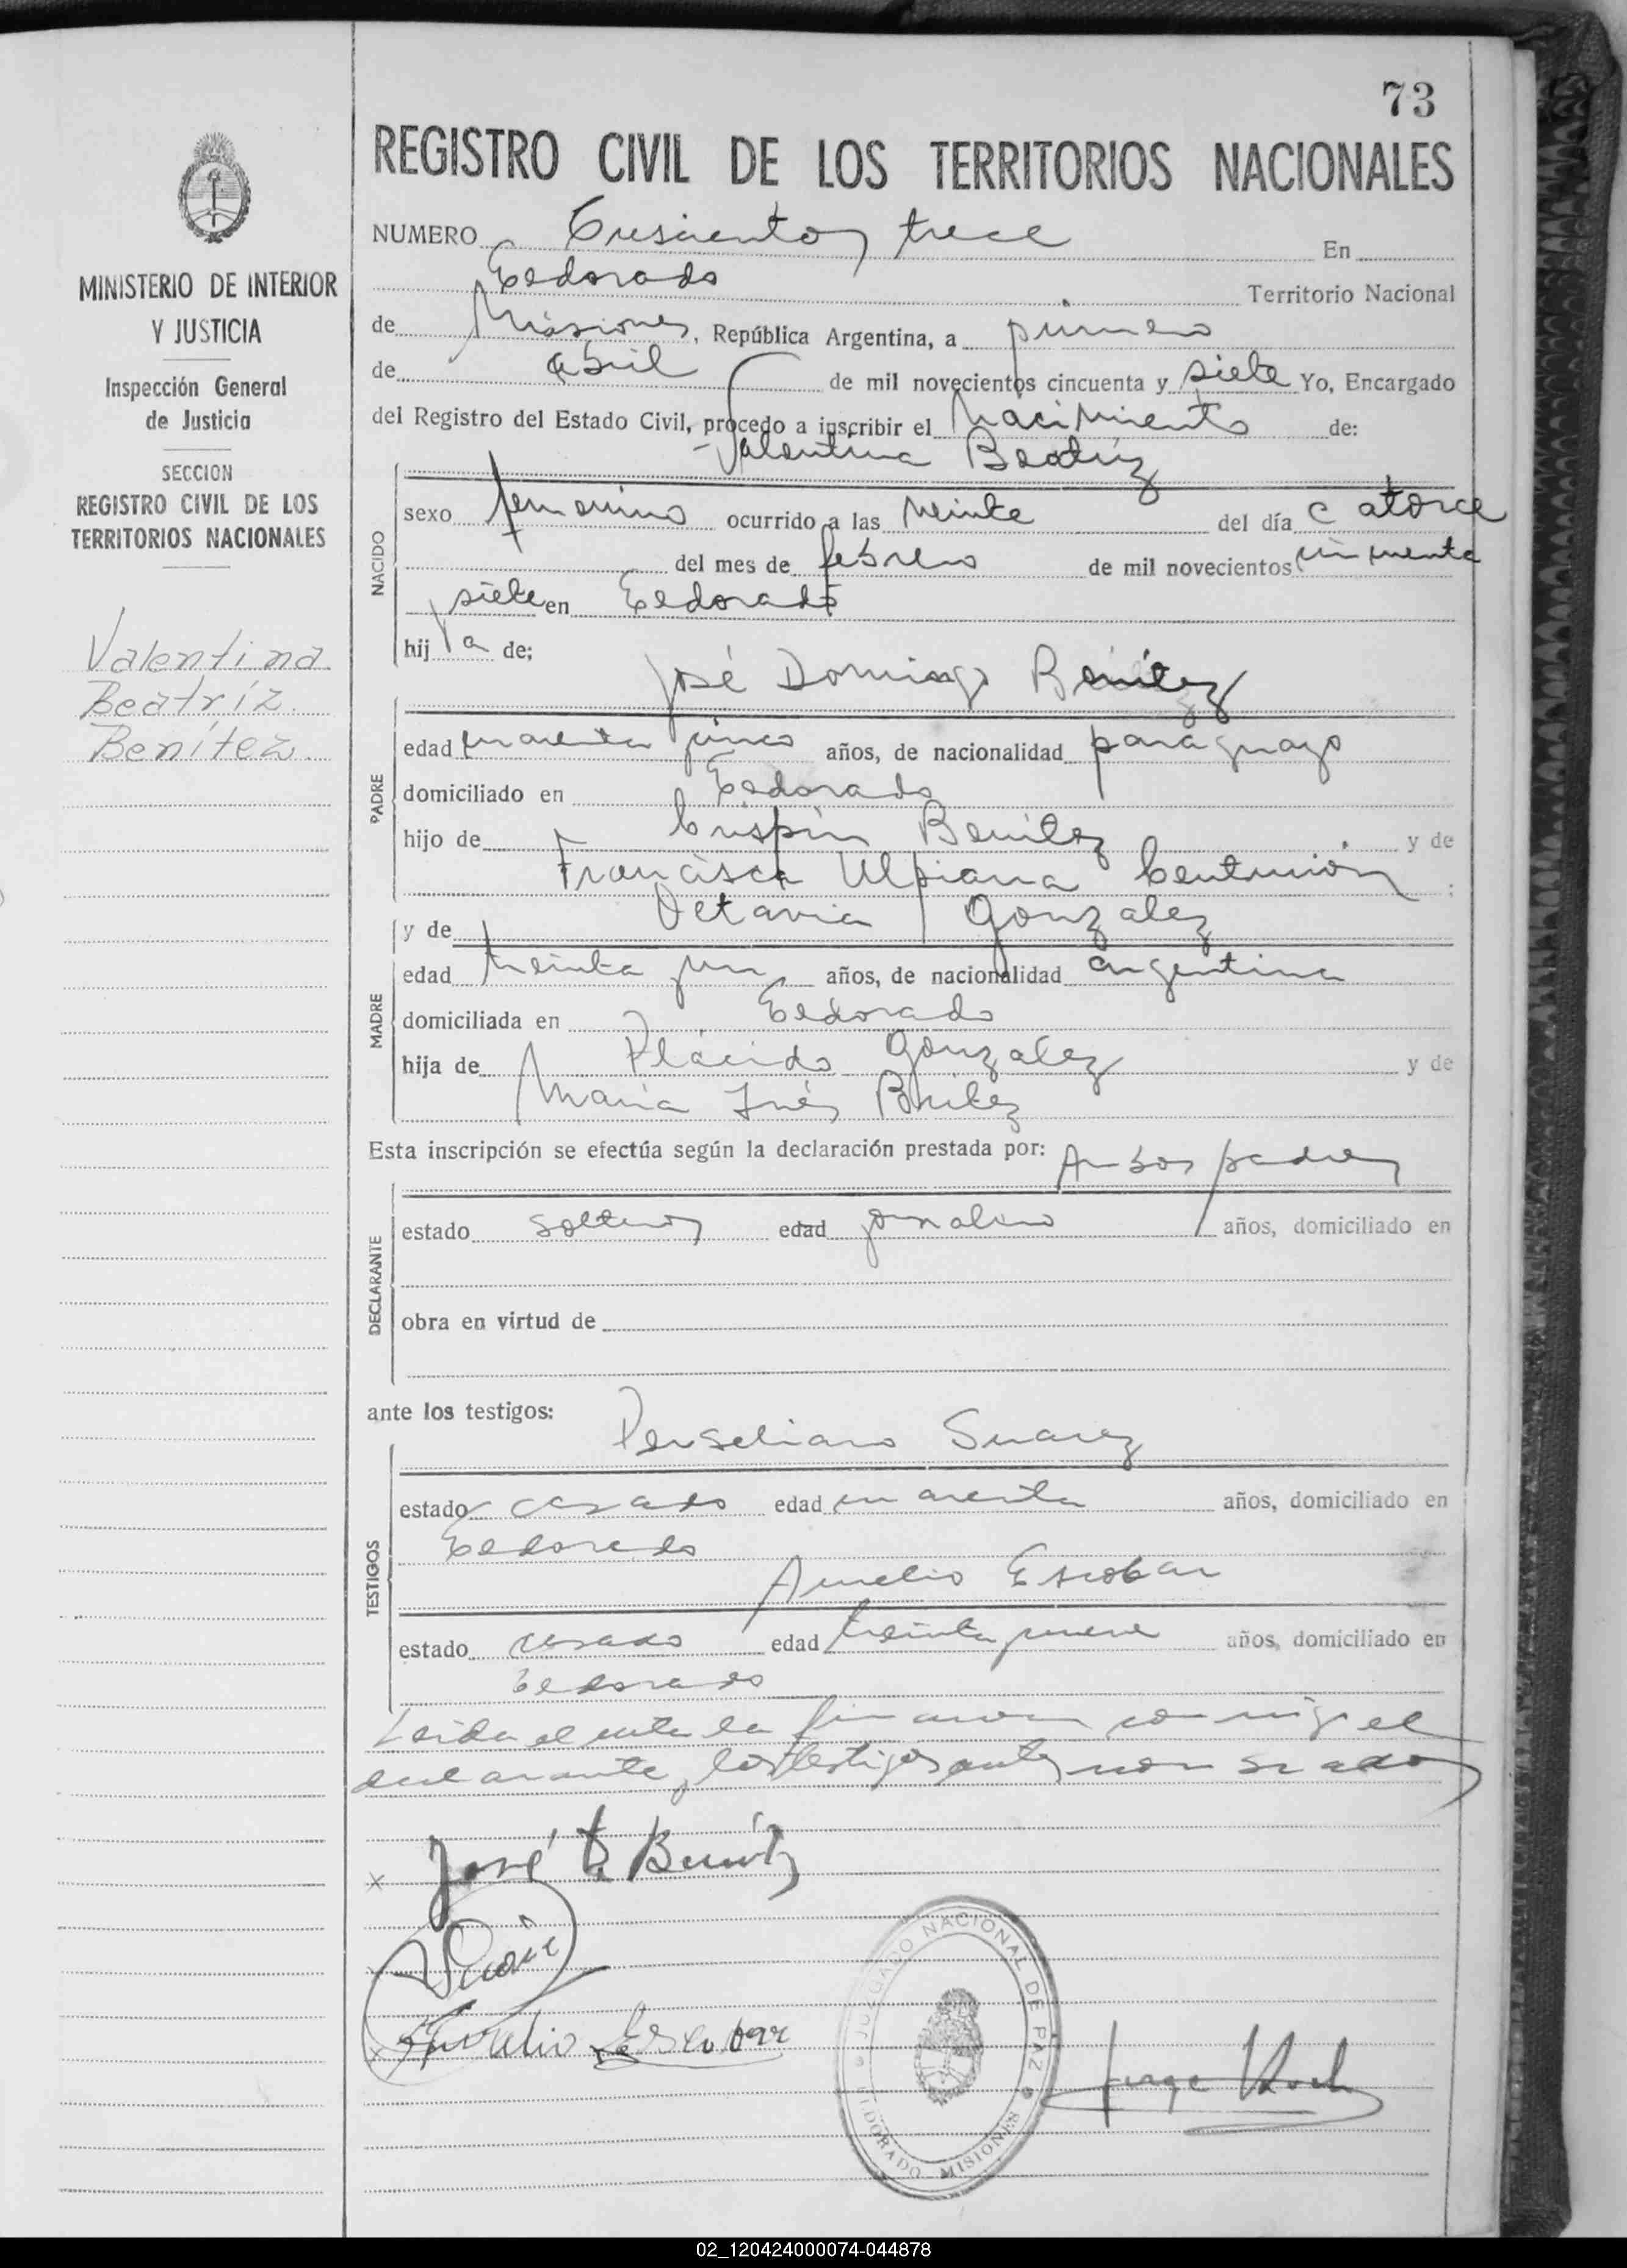 73
REGISTRO CIVIL DE LOS TERRITORIOS NACIONALES
MINISTERIO DE INTERIOR
Y JUSTICIA
Inspección General
de Justicia
SECCION
REGISTRO CIVIL DE LOS
TERRITORIOS NACIONALES
Valentina
Beatríz
Benítez
NUMERO trece En
Eldorado Territorio Nacional
de Misiones, República Argentina, a primero
de abril de mil novecientos cincuenta y siete Yo, Encargado
del Registro del Estado Civil, procedo a inscribir el Nacimiento de:
Valentina Beatríz
NACIDO
sexo femenino ocurrido a las veinte del día catorce
del mes de febrero de mil novecientos cincuenta
y siete en Eldorado
hij a de:
José Domingo Benítez
PADRE
edad cuarenta y cinco años, de nacionalidad paraguayo
domiciliado en Eldorado
hijo de Crispín Benítez y de
Francisca Ulpiana Centurión ;
y de Octavia González
MADRE
edad treinta y un años, de nacionalidad argentina
domiciliada en Eldorado
hija de Plácido González y de
María Inés
Esta inscripción se efectúa según la declaración prestada por: Ambos padres
DECLARANTE
estado solteros edad jornalero años, domiciliado en
obra en virtud de
ante los testigos:
Perseliano Suarez
TESTIGOS
estado casado edad cuarenta años, domiciliado en
Eldorado
Aurelio Escobar
estado casado edad treinta y nueve años, domiciliado en
Eldorado
Leída el acta la firmaron conmigo el
declarante y los testigos antes mencionados
X José D. Benítez
X Aurelio Escobar
Jorge
JUZGADO NACIONAL DE PAZ
ELDORADO MISIONES
02_120424000074-044878